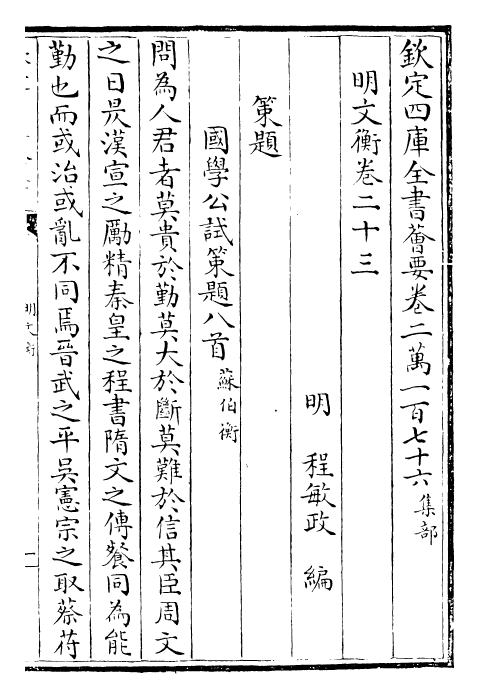 欽定四庫全書薈要卷二萬一百七十六集部
明文衡卷二十三
明 程敏政 編
策題
國學公試策題八首蘇伯衡
問為人君者莫貴於勤莫大於斷莫難於信其臣周文
之日昃漢宣之勵精秦皇之程書隋文之傳餐同為能
勤也而或治或亂不同焉晉武之平吳憲宗之取蔡苻
明文衡